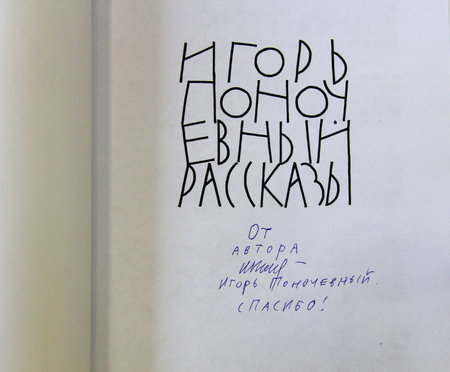 ИГОРЬ
ПОНОЧ
ЕВНЫЙ
РАССКАЗЫ
От
автора
Игорь Поночевный.
СПАСИБО!